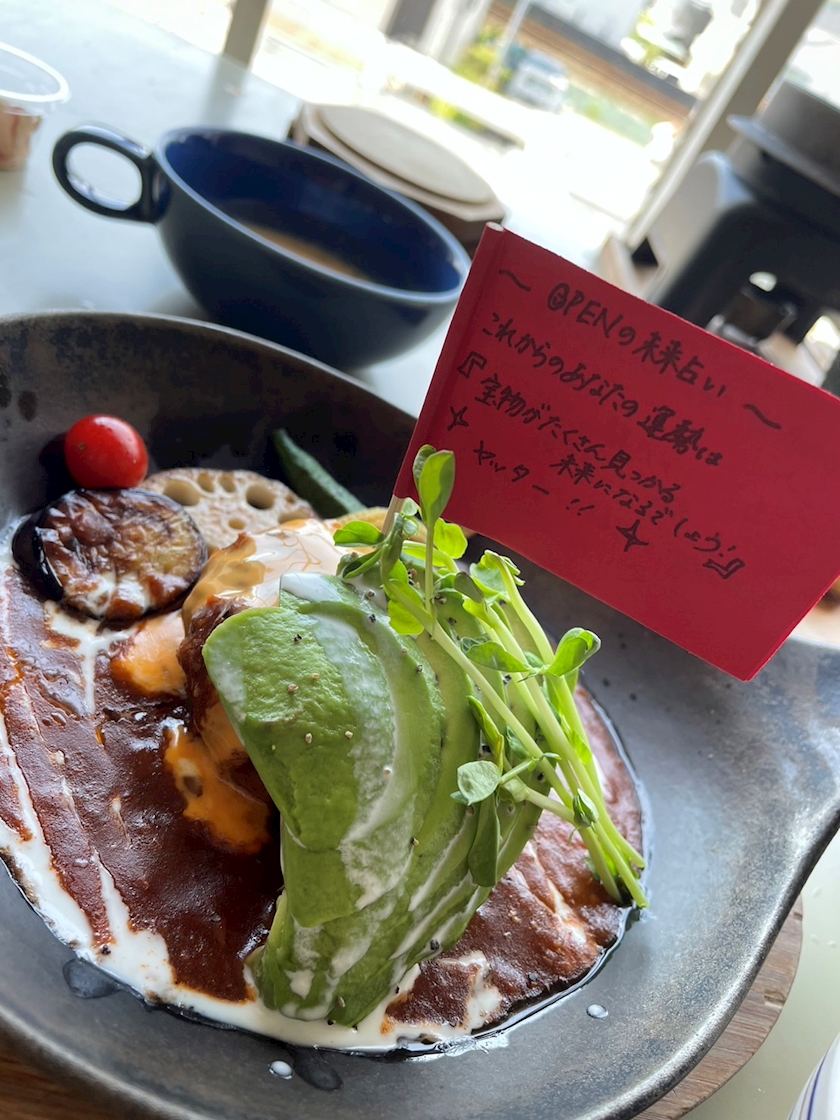 ～ OPENの未来占い ～
これからのあなたの運勢は
『宝物がたくさん見つかる
未来になるでしょう!』
ヤッター!!